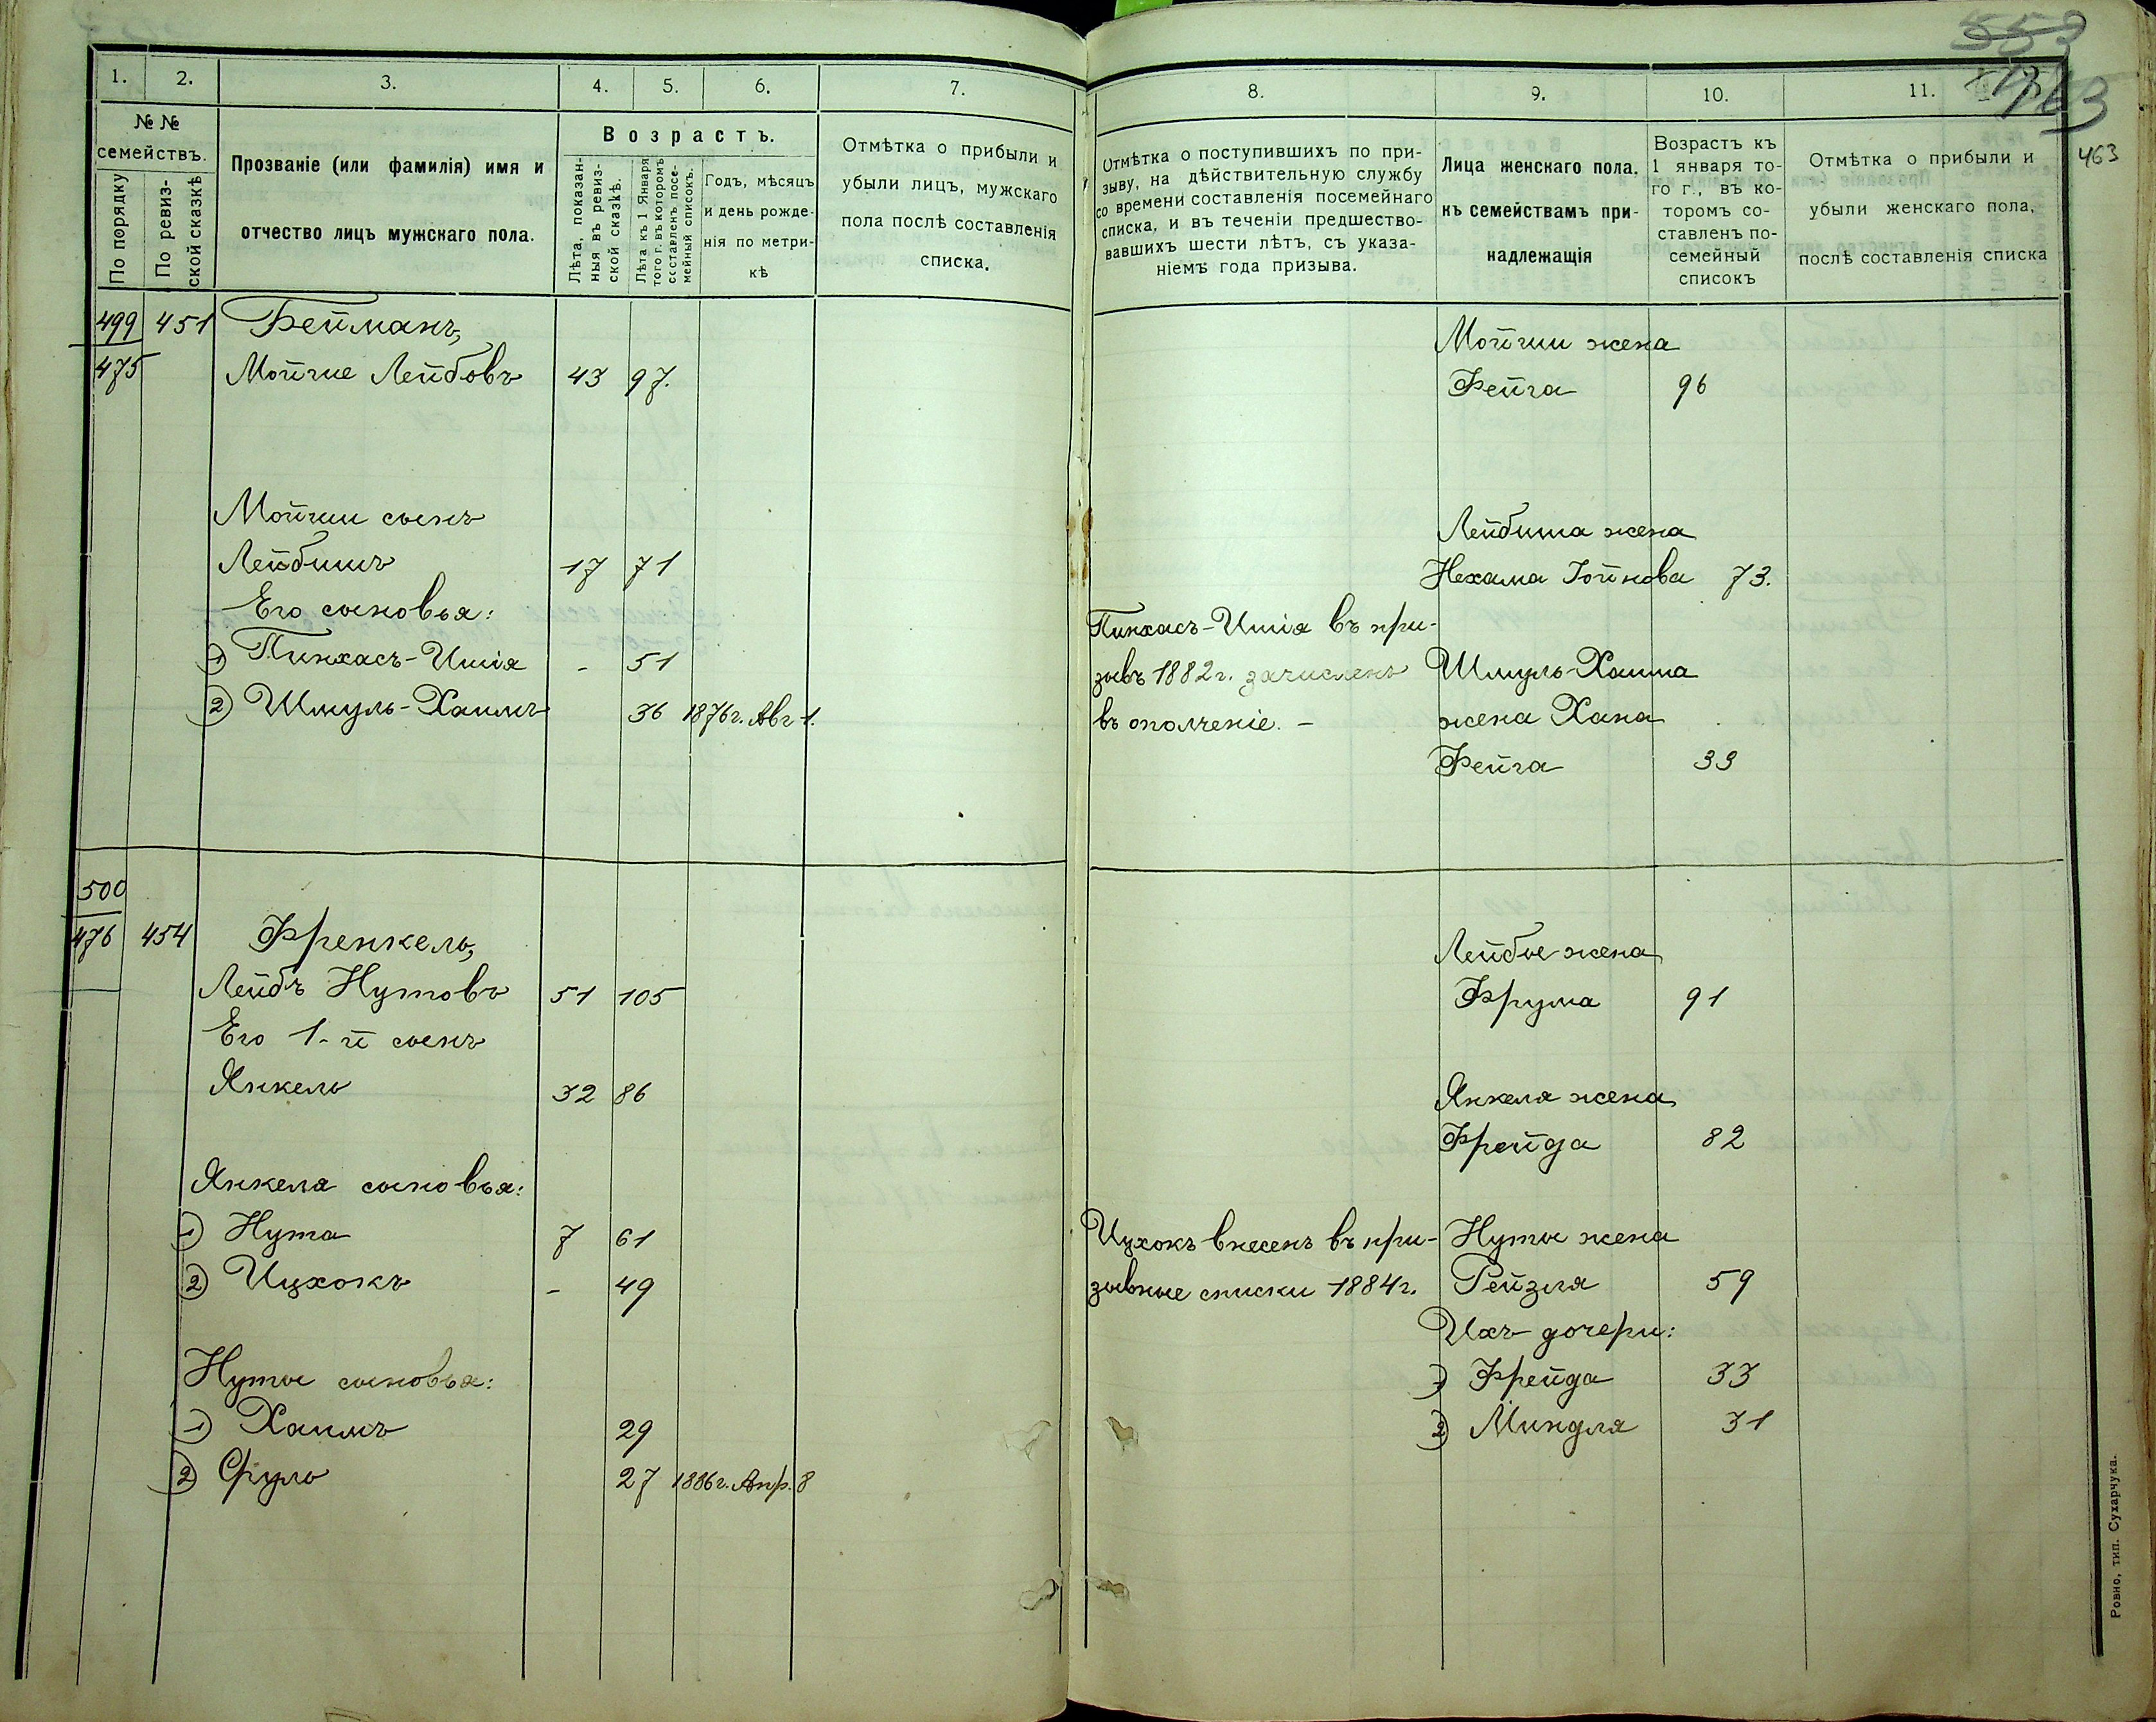 553
463
463
1. 2. 3. 4. 5. 6. 7.
№ № семействъ.
По порядку
По ревиз-
ской сказкѣ
Прозваніе (или фамилія) имя и
отчество лицъ мужскаго пола.
Возрастъ.
Лѣта, показан-
ныя въ ревиз-
ской сказкѣ.
Лѣта къ 1 Января
того г. въ которомъ
составленъ посе-
мейный списокъ.
Годъ, мѣсяцъ
и день рожде-
нія по метри-
кѣ
Отмѣтка о прибыли и
убыли лицъ, мужскаго
пола послѣ составленія
списка.
499 451 Бейманъ,
475 Мойше Лейбовъ 43 97.
Мойши сынъ
Лейбишъ 17 71
Его сыновья:
1) Пинхасъ-Ишія - 51
2) Шмуль-Хаимъ 36 1876г. Авг 1.
500
476 454 Френкель,
Лейбъ Нутовъ 51 105
Его 1-й сынъ
Янкель 32 86
Янкеля сыновья:
1) Нута 7 61
2) Ицхокъ - 49
Нуты сыновья:
1) Хаимъ 29
2) Сруль 27 1886г. Апр. 8
8. 9. 10. 11.
Отмѣтка о поступившихъ по при-
зыву, на дѣйствительную службу
со времени составленія посемейнаго
списка, и въ теченіи предшество-
вавшихъ шести лѣтъ, съ указа-
ніемъ года призыва.
Лица женскаго пола,
къ семействамъ при-
надлежащія
Возрастъ къ
1 января то-
го г., въ ко-
торомъ со-
ставленъ по-
семейный
списокъ
Отмѣтка о прибыли и
убыли женскаго пола,
послѣ составленія списка
Мойши жена
Фейга 96
Лейбиша жена
Нехама Іойнова 73.
Пинхасъ-Ишія въ при-
зывъ 1882г. зачисленъ
въ ополченіе. -
Шмуль-Хаима
жена Хана
Фейга 33
Лейбы жена
Фрума 91
Янкеля жена
Фрейда 82
Ицхокъ внесенъ въ при-
зывные списки 1884г.
Нуты жена
Рейзля 59
Ихъ дочери:
1) Фрейда 33
2) Миндля 31
Ровно, тип. Сухарчука.